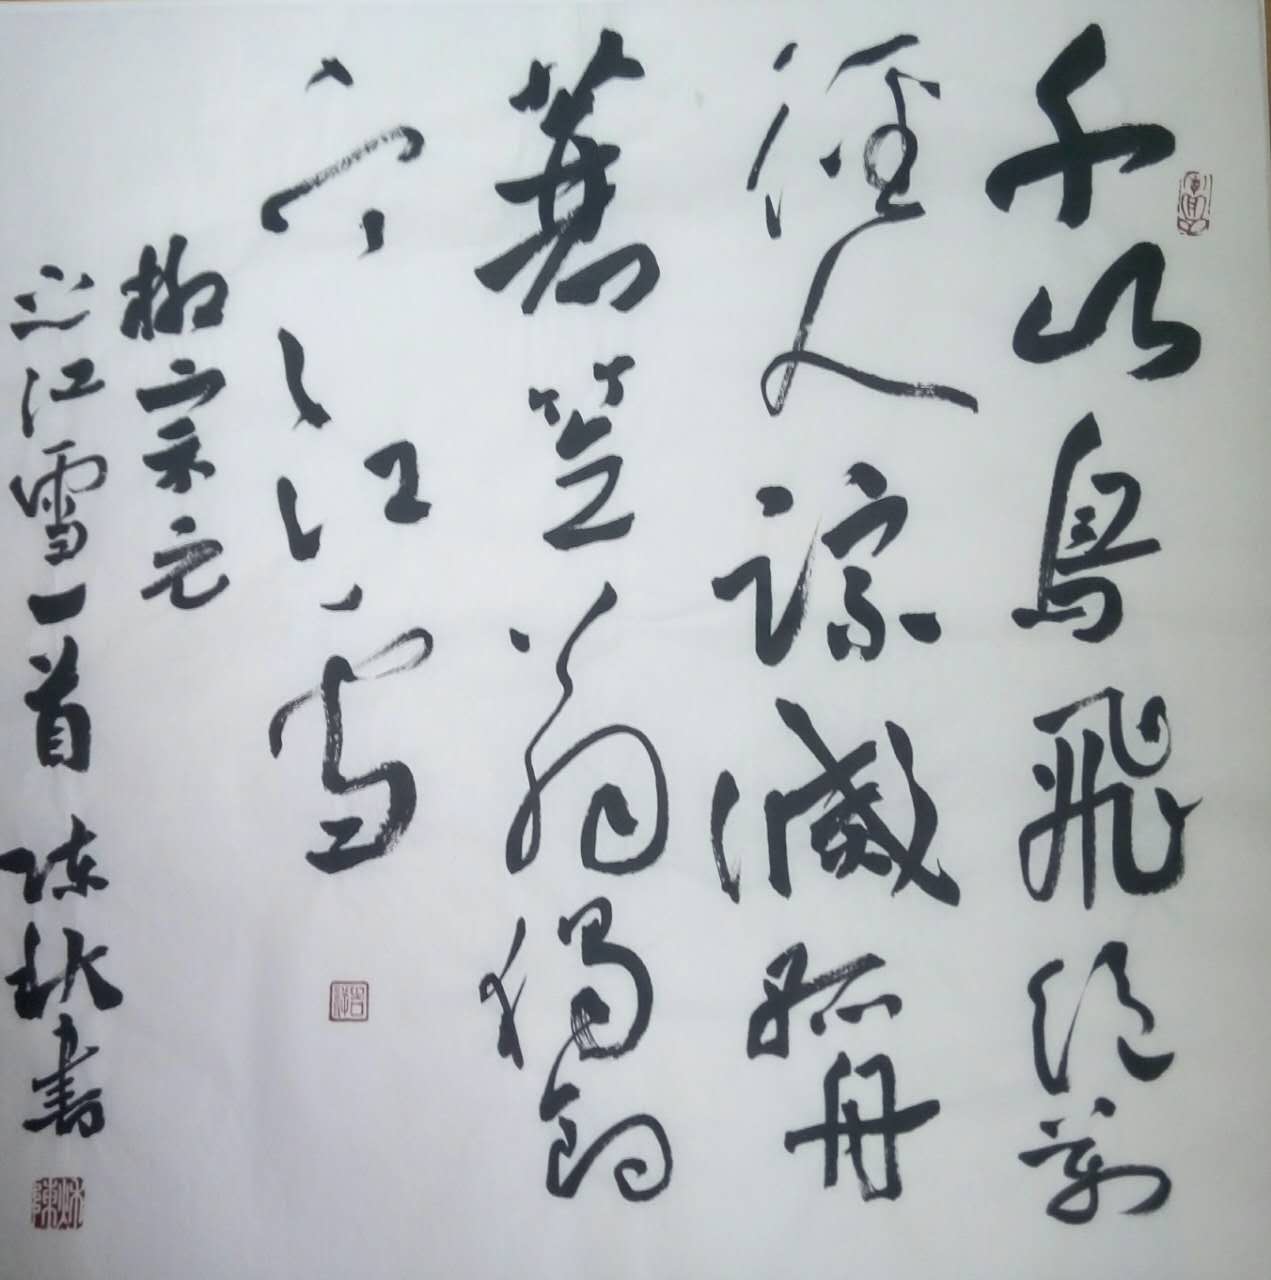 千山鳥飛絕萬
徑人踪滅孤舟
蓑笠翁獨釣
寒江雪
柳宗元
江雪一首 陳秋書